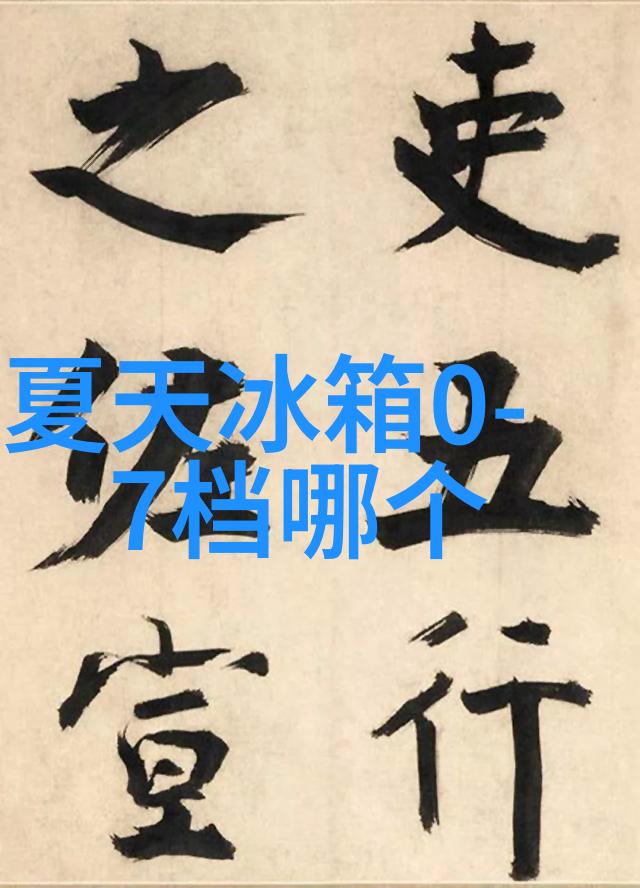 吏五行
之佐宣
夏天冰箱0-
7档哪个